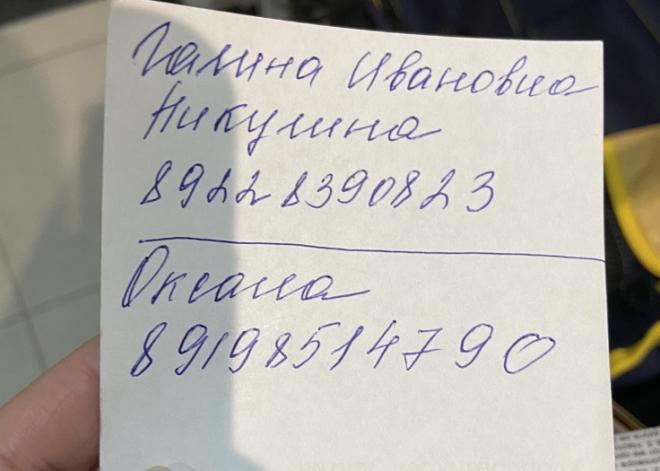 Галина Ивановна
Никулина
89228390823
Оксана
89198514790